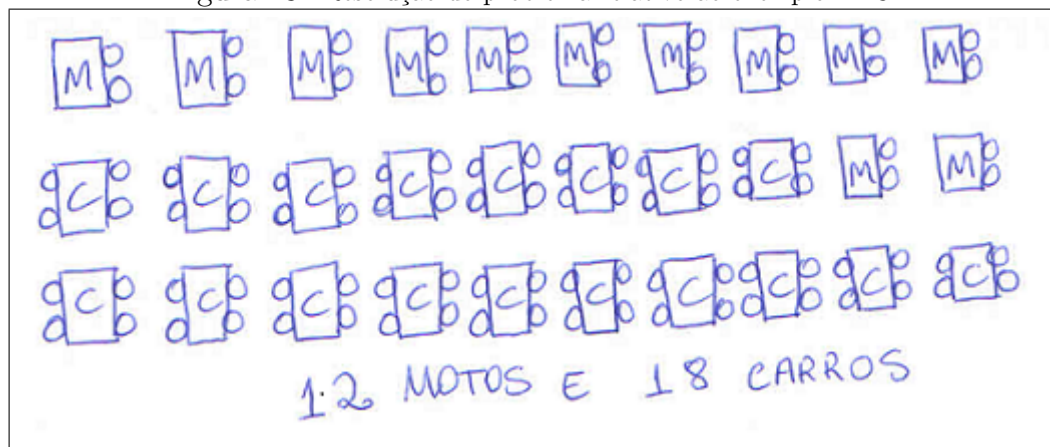 M M M M M M M M M M
C C C C C C C C M M
C C C C C C C C C C
12 MOTOS E 18 CARROS